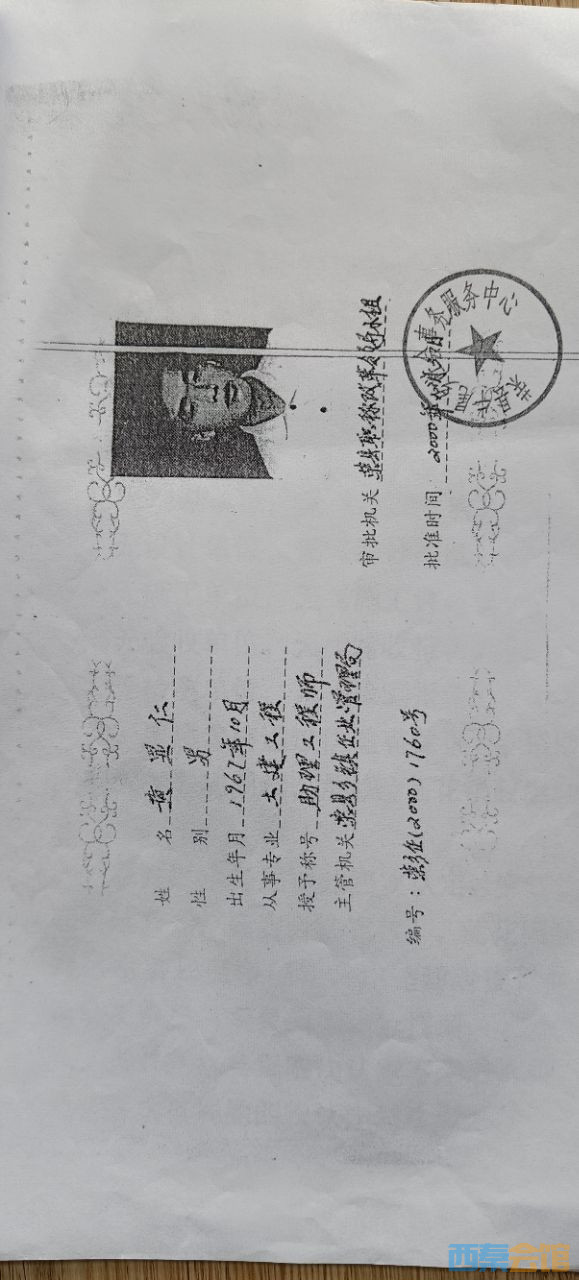 姓 名 黄显仁
性 别 男
出生年月 1967年10月
从事专业 土建工程
授予称号 助理工程师
主管机关 荣县乡镇企业管理局
编号：荣乡企(2000)1760号
审批机关 荣县职称改革领导小组
批准时间 2000年
荣县 人事 服务中心
西秦会馆